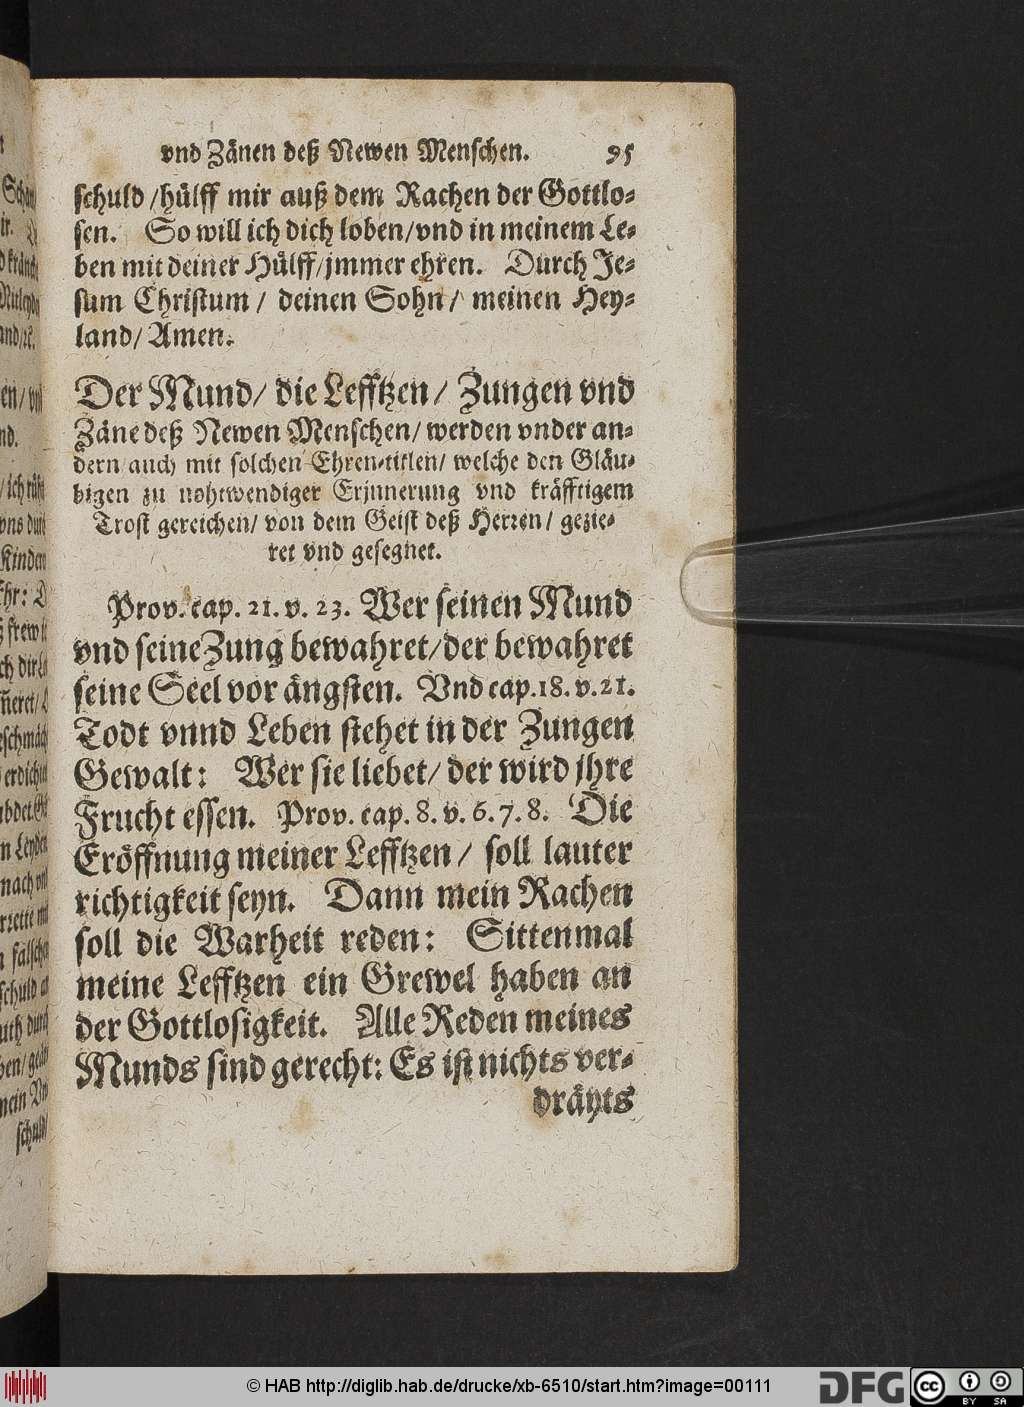 vnd Zänen deß Newen Menschen. 95
schuld / hülff mir auß dem Rachen der Gottlo-
sen. So will ich dich loben / vnd in meinem Le-
ben mit deiner Hülff / jmmer ehren. Durch Je-
sum Christum / deinen Sohn / meinen Hey-
land / Amen.
Der Mund / die Lefftzen / Zungen vnd
Zäne deß Newen Menschen / werden vnder an-
dern auch mit solchen Ehren-titlen / welche den Gläu-
bigen zu nohtwendiger Erjnnerung vnd kräfftigem
Trost gereichen / von dem Geist deß Herren / gezie-
ret vnd gesegnet.
Prov. cap. 21. v. 23. Wer seinen Mund
vnd seine Zung bewahret / der bewahret
seine Seel vor ängsten. Vnd cap. 18. v. 21.
Todt vnnd Leben stehet in der Zungen
Gewalt: Wer sie liebet / der wird jhre
Frucht essen. Prov. cap. 8. v. 6. 7. 8. Die
Eröffnung meiner Lefftzen / soll lauter
richtigkeit seyn. Dann mein Rachen
soll die Warheit reden: Sittenmal
meine Lefftzen ein Grewel haben an
der Gottlosigkeit. Alle Reden meines
Munds sind gerecht: Es ist nichts ver-
dräyts
© HAB http://diglib.hab.de/drucke/xb-6510/start.htm?image=00111
DFG
cc BY SA